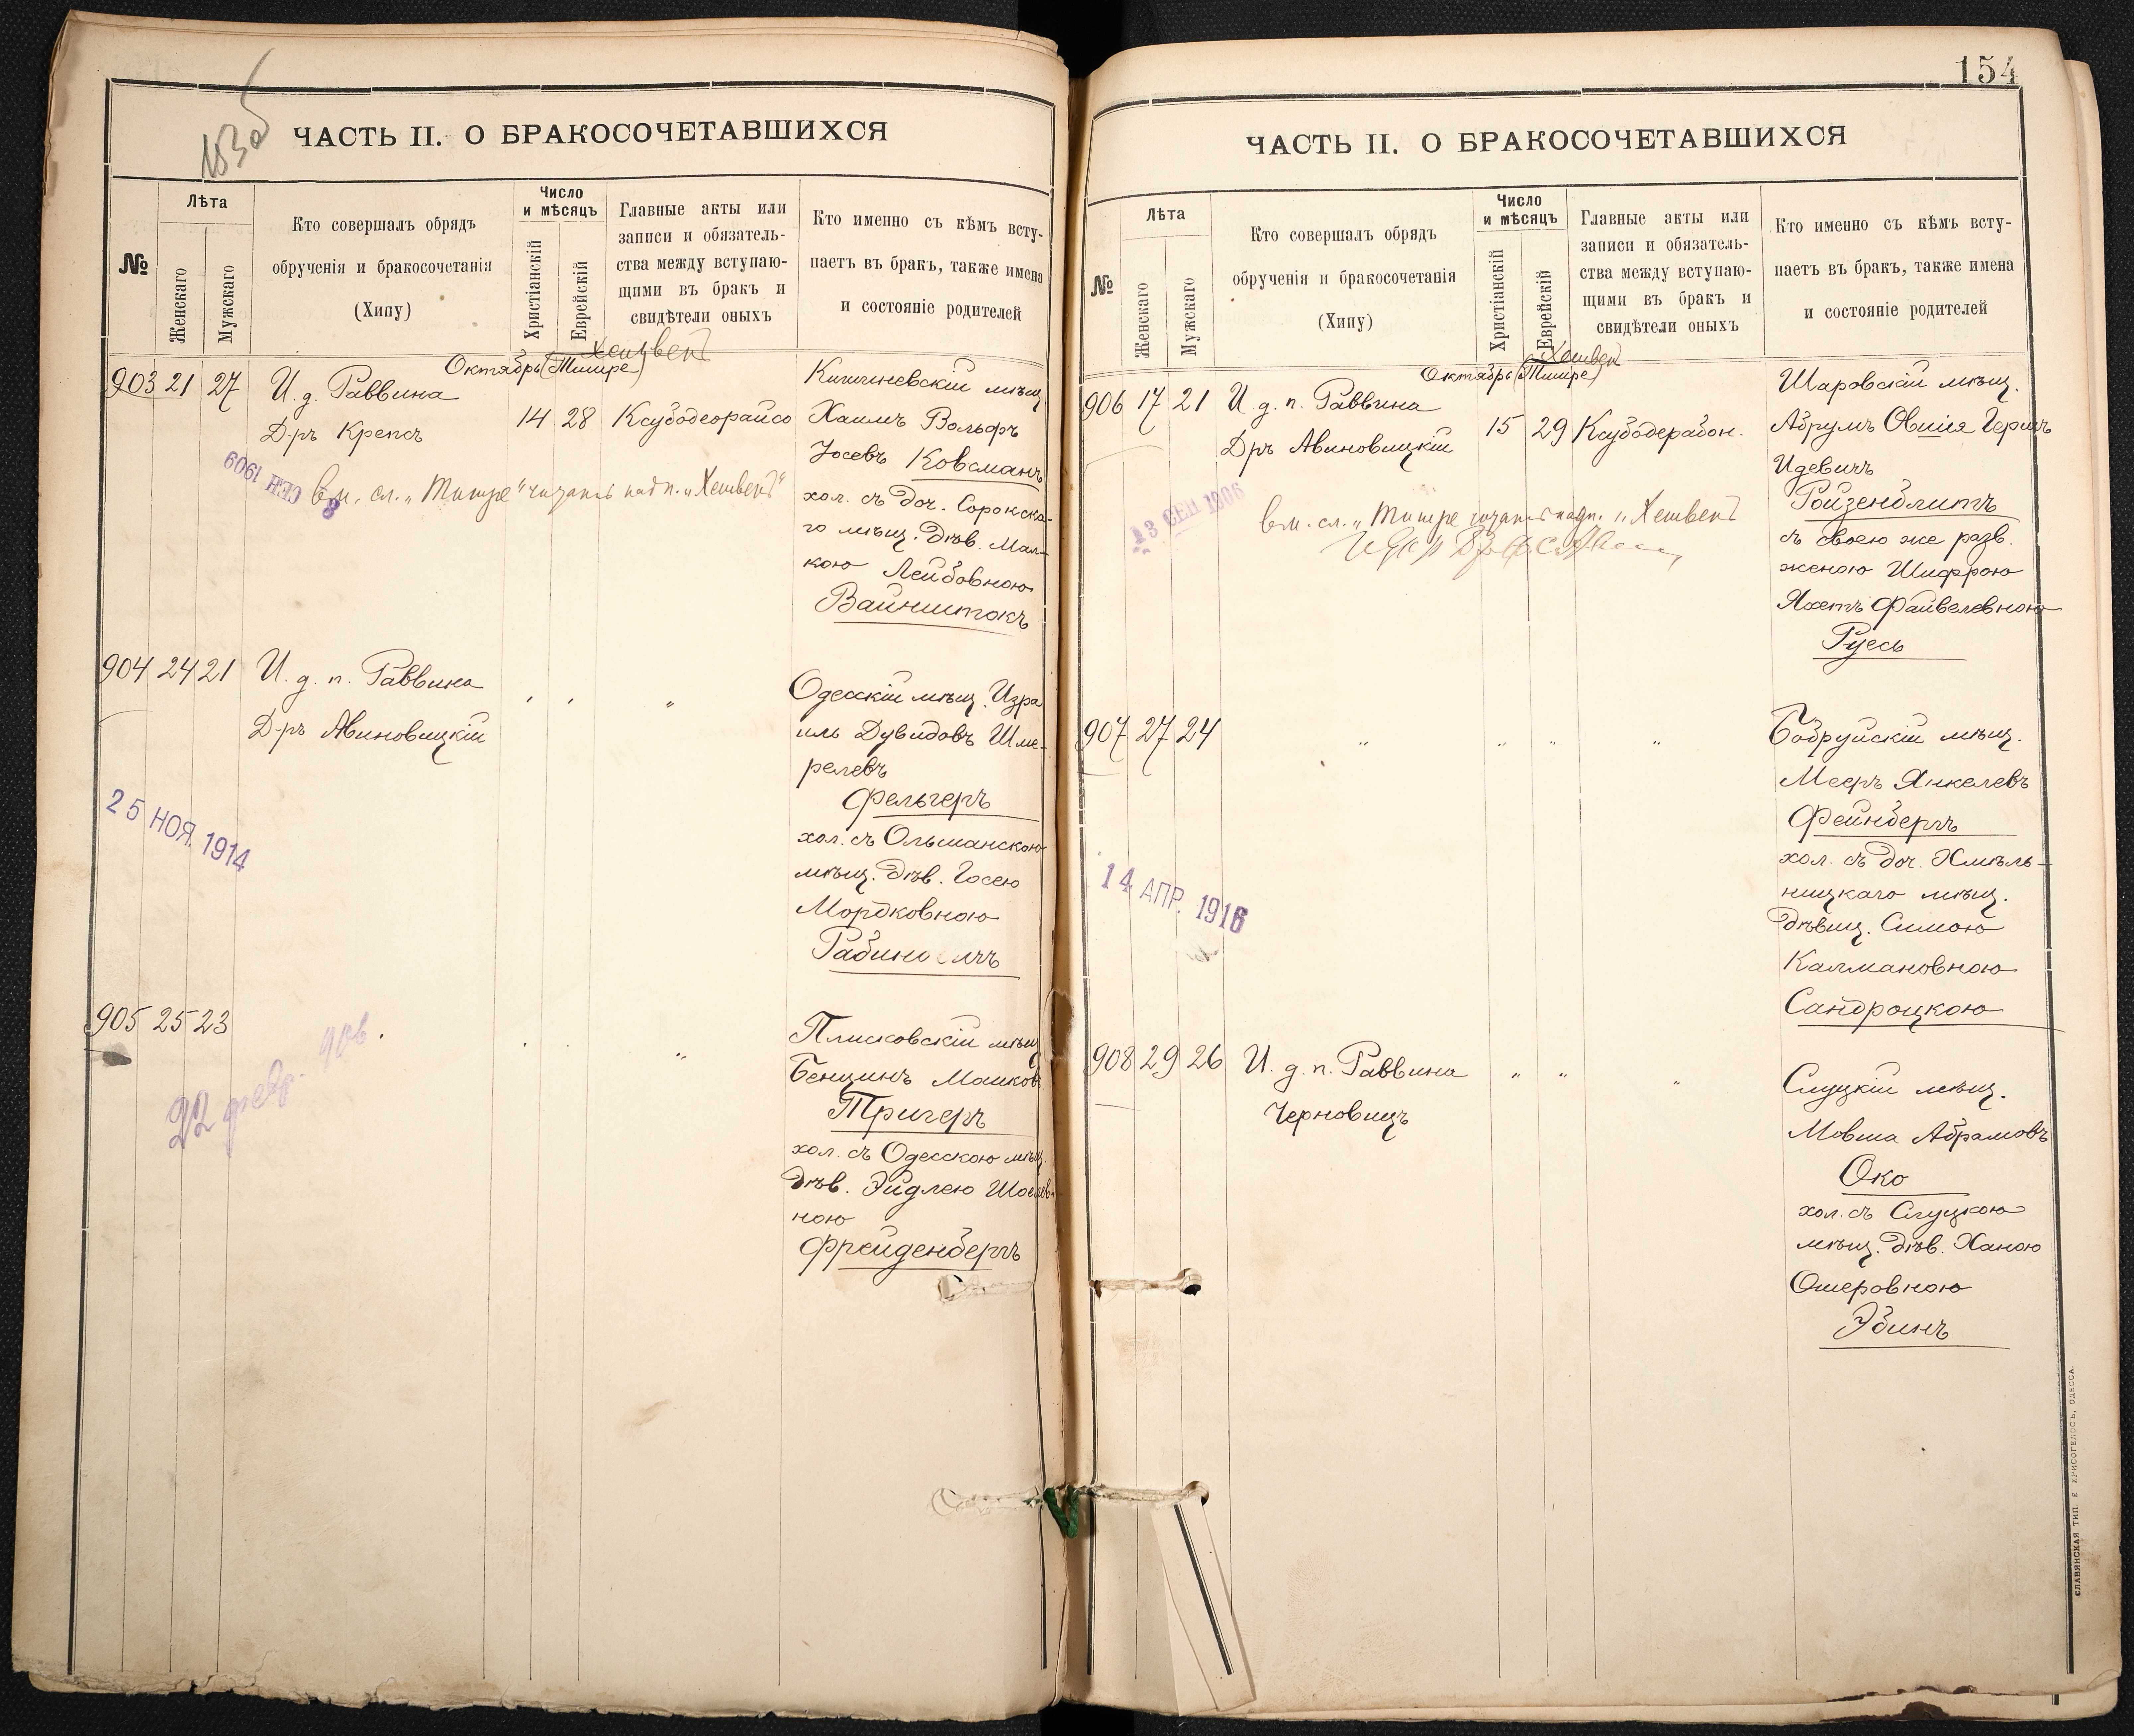 153об
ЧАСТЬ II. О БРАКОСОЧЕТАВШИХСЯ
№
Лѣта
Женскаго
Мужскаго
Кто совершалъ обрядъ
обрученія и бракосочетанія
(Хипу)
Число
и мѣсяцъ
Христіанскій
Еврейскій
Главные акты или
записи и обязатель-
ства между вступаю-
щими въ бракъ и
свидѣтели оныхъ
Кто именно съ кѣмъ всту-
паетъ въ бракъ, также имена
и состояніе родителей
Хешвенъ
Октябрь (Тишре)
903 21 27 И. д. Раввина
Д-ръ Крепсъ
14 28 Ксубодеорайсо
Кишиневскій мѣщ.
Хаимъ Вольфъ
Іосевъ Ковсманъ
хол. съ доч. Сорокска-
го мѣщ. дѣв. Мал-
кою Лейбовною
Вайнштокъ
8 СЕН 1909
вм. сл. „Тишре" читать надп. „Хешвенъ"
904 24 21 И. д. п. Раввина
Д-ръ Авиновицкій
" " "
Одесскій мѣщ. Изра
иль Дувидовъ Шме-
релевъ
Фельгеръ
хол. съ Ольшанскою
мѣщ. дѣв. Госею
Мордковною
Рабиновичъ
25 НОЯ. 1914
905 25 23
"
Плисковскій мѣщ
Бенцинъ Машков
Тригеръ
хол. съ Одесскою мѣщ.
дѣв. Эйдлею Шоелев-
ною
Фрейденбергъ
22 февр. 906.
154
ЧАСТЬ II. О БРАКОСОЧЕТАВШИХСЯ
№
Лѣта
Женскаго
Мужскаго
Кто совершалъ обрядъ
обрученія и бракосочетанія
(Хипу)
Число
и мѣсяцъ
Христіанскій
Еврейскій
Главные акты или
записи и обязатель-
ства между вступаю-
щими въ бракъ и
свидѣтели оныхъ
Кто именно съ кѣмъ всту-
паетъ въ бракъ, также имена
и состояніе родителей
Хешвен
Октябрь (Тишре)
906 17 21 И. д. п. Раввина
Д-ръ Авиновицкій
15 29 Ксубодерабон.
Шаровскій мѣщ.
Абрумъ Овшія Гершъ
Идевичъ
Ройзенблитъ
съ своею же разв.
женою Шифрою
Яхетъ Файвелевною
Русь
13 СЕН 1906
вм. сл. „Тишре читать надп. „Хешвенъ
907 27 24
" " " "
Бобруйскій мѣщ.
Мееръ Янкелевъ
Фейнбергъ
хол. съ доч. Хмѣль-
ницкаго мѣщ.
дѣвиц. Симою
Калмановною
Сандроцкою
14 АПР. 1916
908 29 26 И. д. п. Раввина
Черновицъ
" " "
Слуцкій мѣщ.
Мовша Абрамовъ
Око
хол. съ Слуцкою
мѣщ. дѣв. Ханою
Ошеровною
Эбинъ
СЛАВЯНСКАЯ ТИП. Е. ХРИСОГЕЛОСЪ, ОДЕССА.